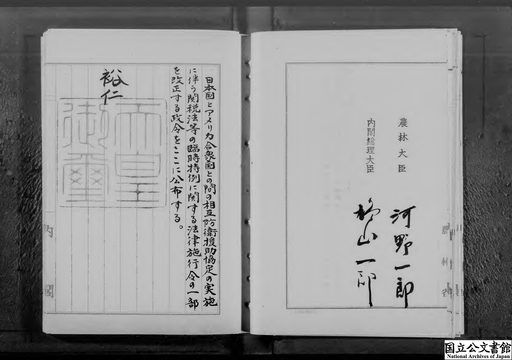 日本国とアメリカ合衆国との間の相互防衛援助協定の実施
に伴う関税法等の臨時特例に関する法律施行令の一部
を改正する政令をここに公布する。
裕仁
天皇
御璽
内閣
農林大臣
河野一郎
内閣総理大臣
鳩山一郎
国立公文書館
National Archives of Japan